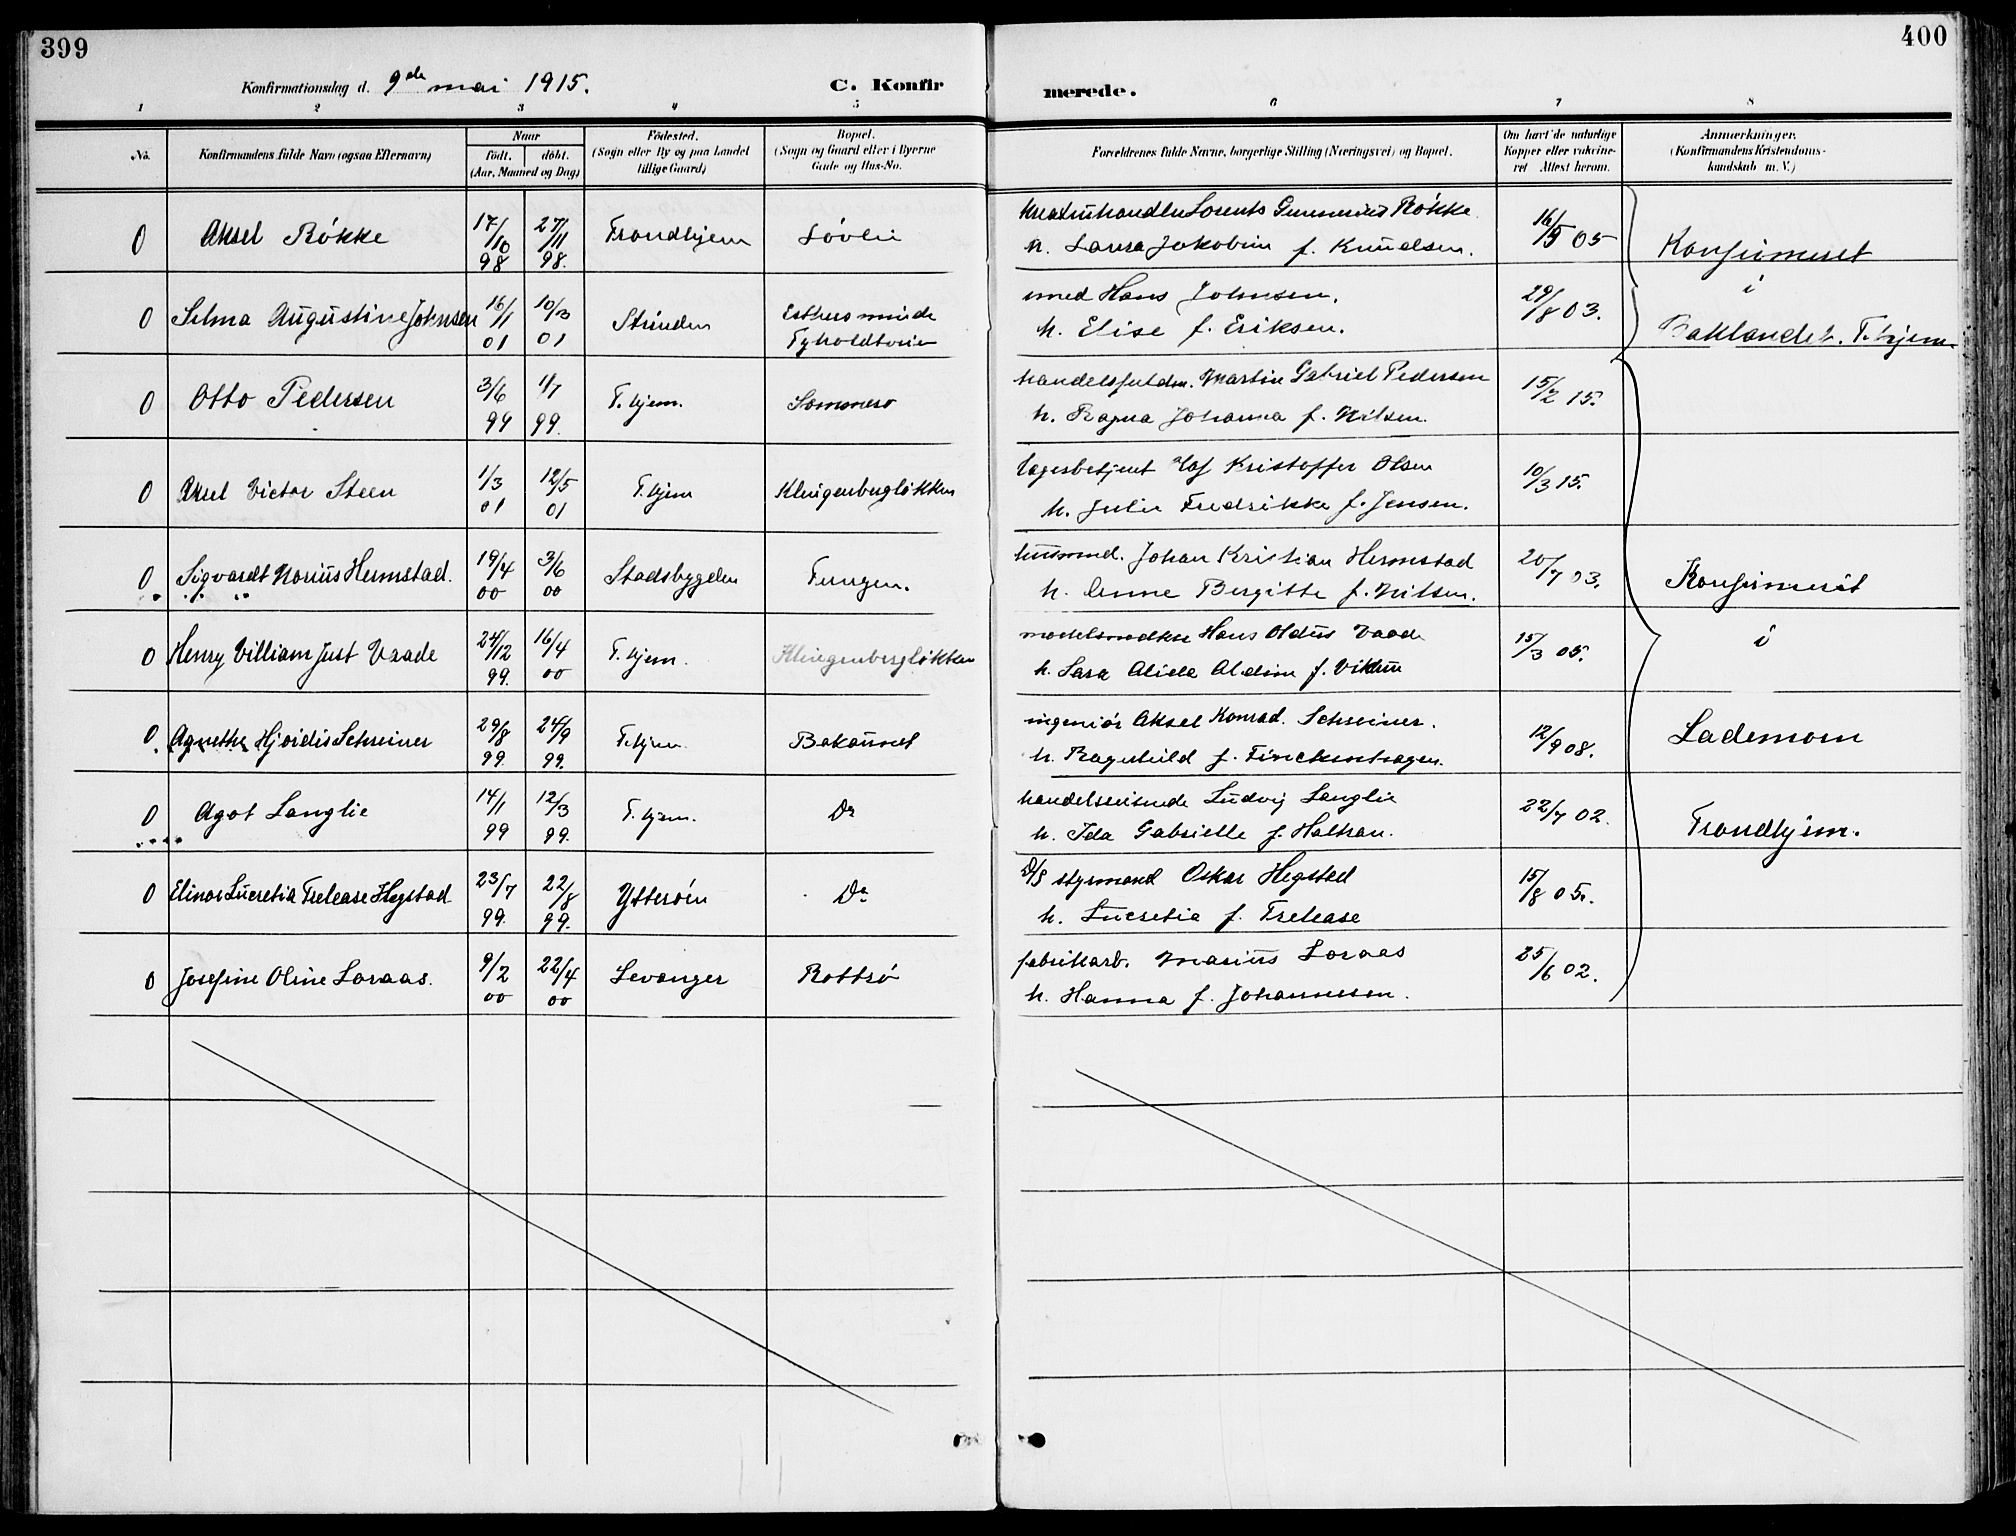 399
400
Konfirmationsdag d. 9de mai 1915.
C. Konfir
merede.
1 2 3 4 5 6 7 8
No.
Konfirmandens fulde Navn (ogsaa Efternavn)
Naar
födt. döbt.
(Aar, Maaned og Dag)
Födested.
(Sogn eller By og paa Landet
tillige Gaard)
Bopæl.
(Sogn og Gaard eller i Byerne
Gade og Hus-No.
Forældrenes fulde Navne, borgerlige Stilling (Næringsvei) og Bopæl.
Om havt de naturlige
Kopper eller vakcine-
ret Attest herom.
Anmærkninger.
(Konfirmandens Kristendoms-
kundskab m. V.)
0 Aksel Røkke 17/10 98 27/11 98. Trondhjem Løvlie
Kreaturhandler Lorents Gunnerius Røkke
h. Laura Jakobine f. Knudsen. 16/5 05
0 Selma Augustine Johnsen 16/1 01 10/3 01 Strinden Esthersminde
Tyholdtveien
smed Hans Johnsen.
h. Elise f. Eriksen. 29/8 03.
Konfirmeret
i
Baklandet. T.hjem.
0 Otto Pedersen 3/6 99 1/7 99. T.hjem. Sommero
handelsfuldm. Martin Gabriel Pedersen
h. Ragna Johanna f. Nilsen. 15/2 15.
0 Aksel Victor Steen 1/3 01 12/5 01 T.hjem Klingenbergløkken
lagerbetjent Olaf Kristoffer Olsen
h. Julie Fredrikke f. Jensen. 10/3 15.
0 Sigvardt Norius Hermstad. 19/4 00 3/6 00 Stadsbygden Tungen.
husmd. Johan Kristian Hermstad
h. Anne Bergitte f. Nilsen. 20/7 03.
0 Henry Villiam Just Vaade 24/12 99. 16/4 00 T.hjem. Klingenbergløkken
modelsnedker Hans Oldus Vaade
h. Sara Alide Aldine f. Vikan 15/3 05.
0. Agnethe Hjördis Schreiner 29/8 99. 24/9 99. T.hjem. Bakaunet
ingeniör Aksel Konrad Schreiner.
h. Ragnhild f. Finckenhagen. 12/9 08.
0 Agot Langlie 14/1 99 12/3 99. T.hjem. Do
handelsreisende Ludvig Langlie
h. Ida Gabrielle f. Haltran. 22/7 02.
0 Elinor Lucretia Trelease Hegstad 23/7 99. 22/8 99. Ytterøen Do
D/S styrmand Oskar Hegstad
h. Lucretia f. Trelease 15/8 05.
0 Josefine Oline Loraas. 9/2 00 22/4 00 Levanger Rottsø
fabrikarb. Marius Loraas
h. Hanna f. Johannesen. 25/6 02.
Konfirmeret
i
Lademoen
Trondhjem.